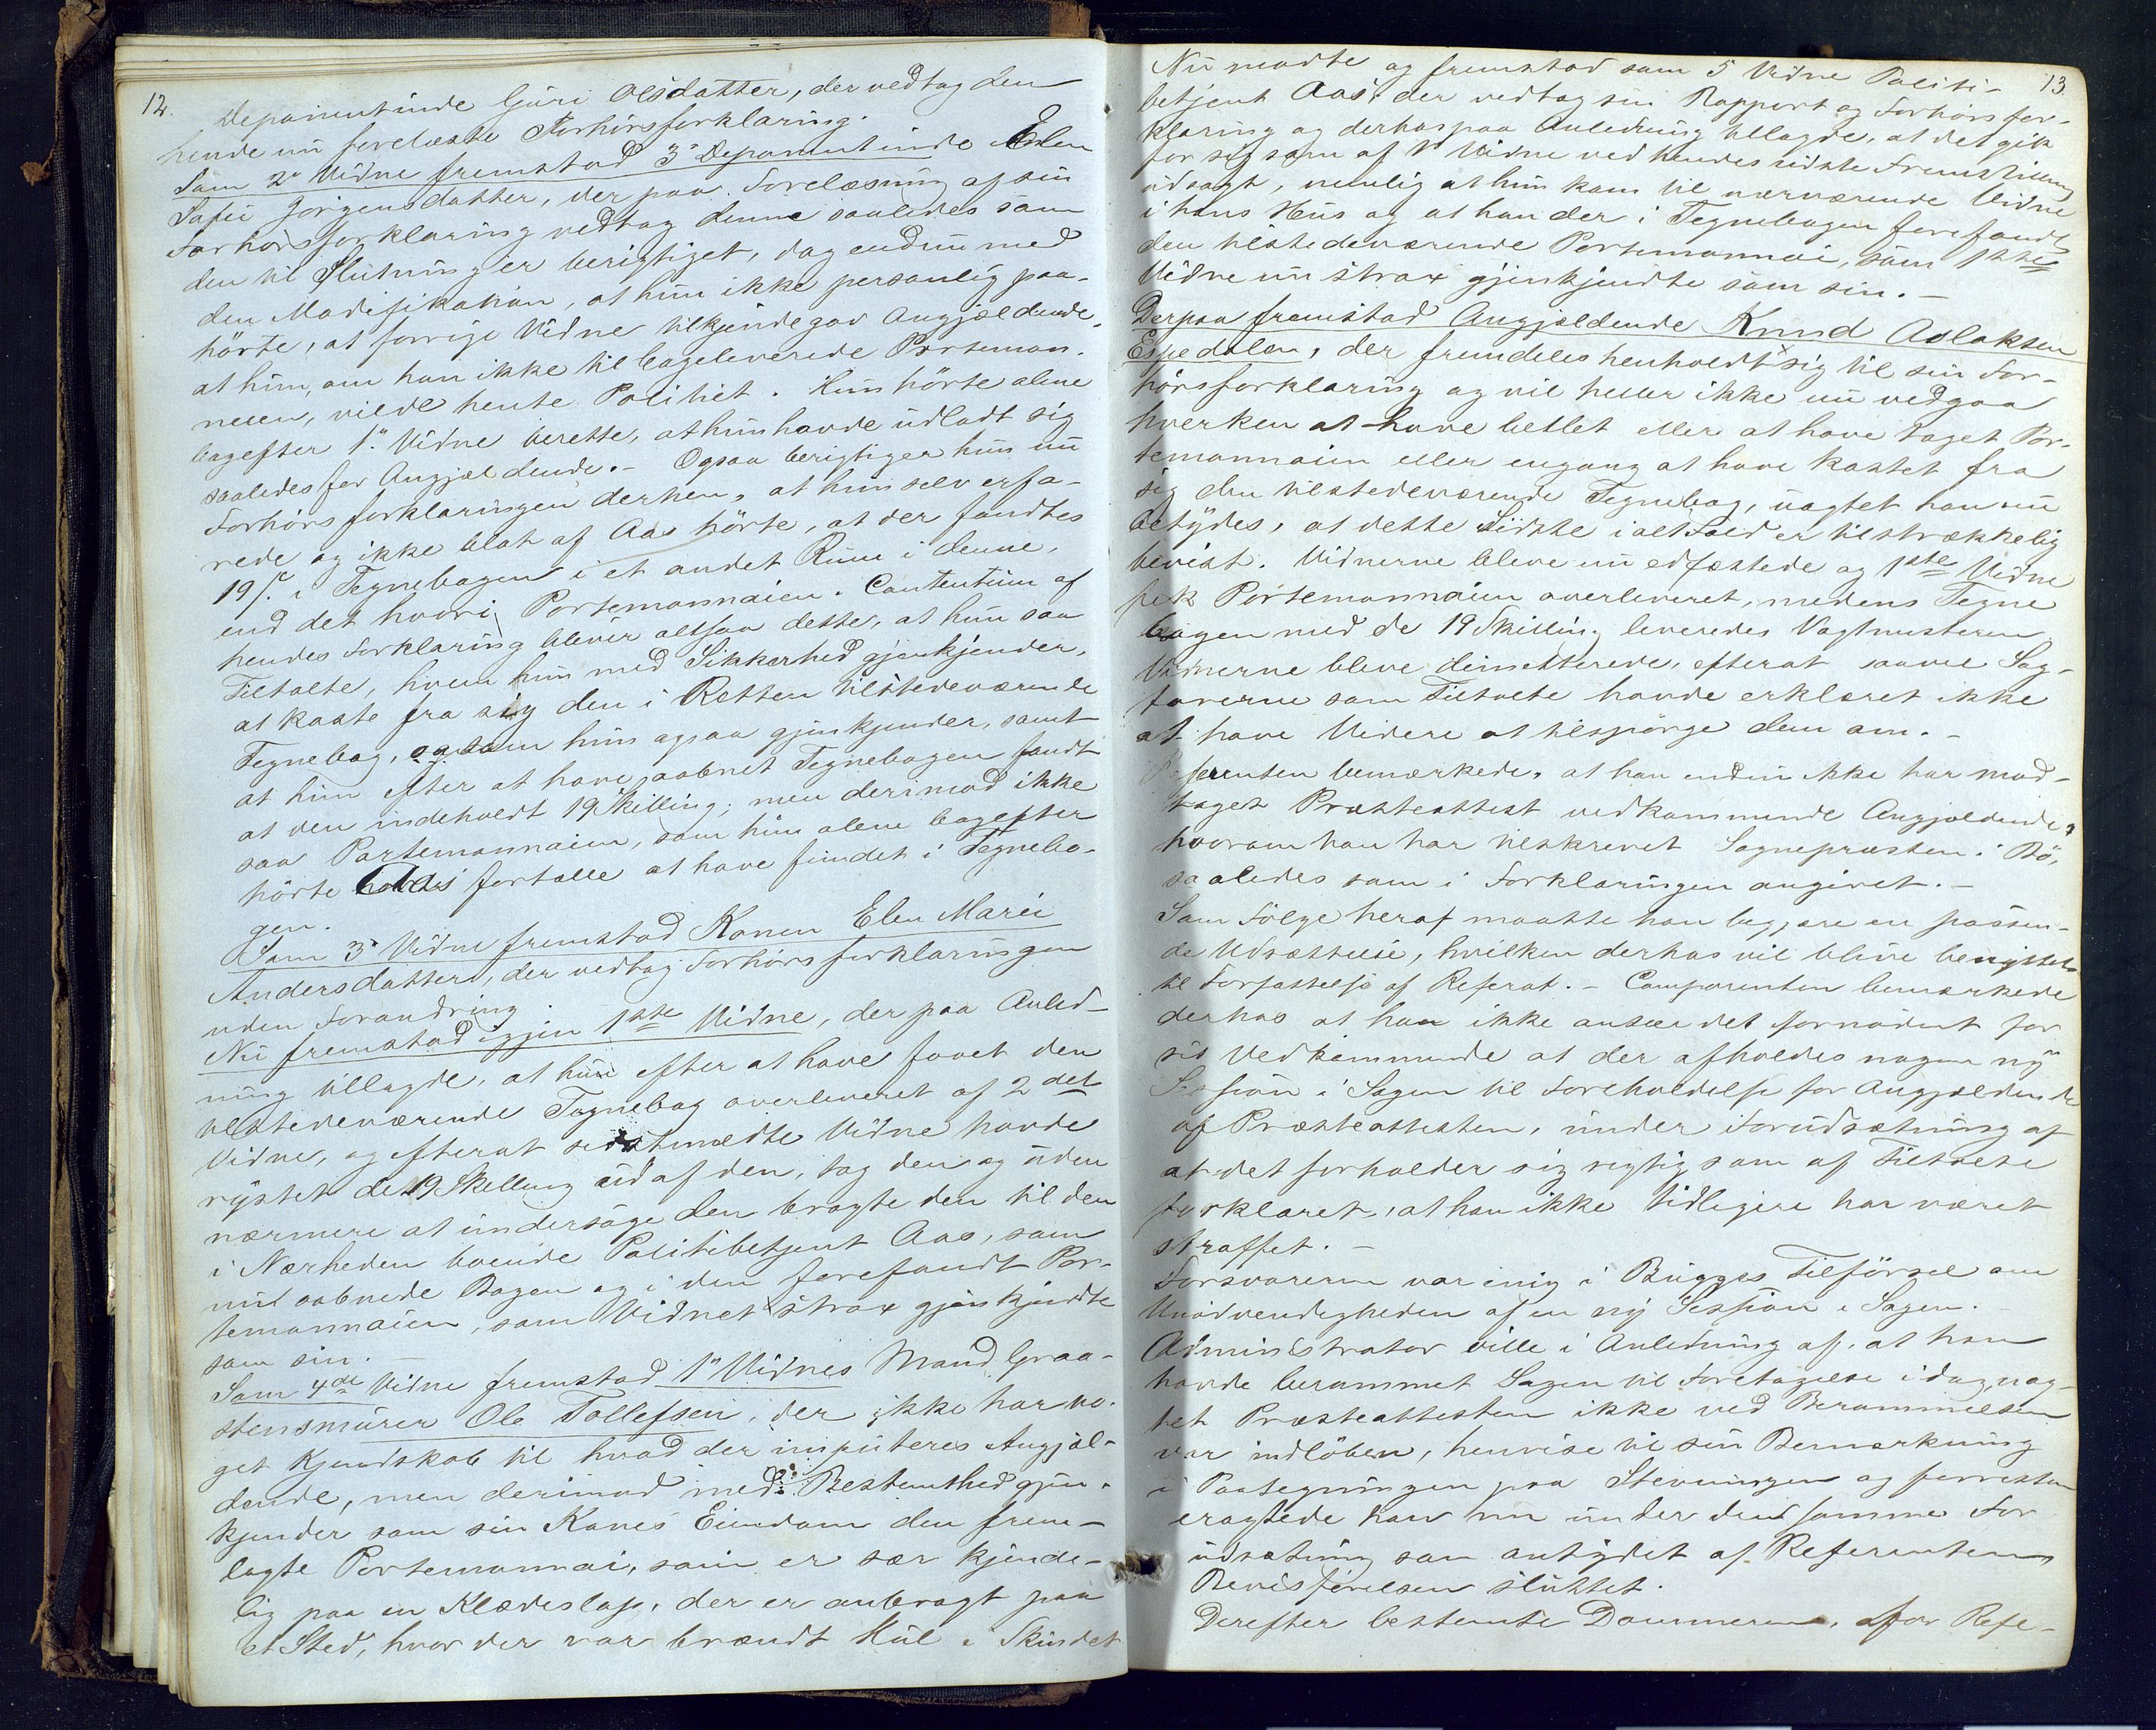 12.
Deponentinde Guri Olsdatter, der vedtog den
hende nu forelæste Forhörsforklaring.
Som 2det Vidne fremstod 3die Deponentinde Elen
Sofie Jörgensdatter, der paa Forelæsning af sin
Forhörsforklaring vedtog denne saaledes som
den til Slutning er berigtiget, dog endnu med
den Modifikation, at hun ikke personlig paa-
hörte, at forrige Vidne tilkjendegav Angjældende,
at hun, om han ikke tilbageleverede Portemon-
neen, vilde hente Politiet. Hun hörte alene
bagefter 1ste Vidne berette, at hun havde udladt sig
saaledes for Angjældende. - Ogsaa berigtiger hun nu
Forhörsforklaringen derhen, at hun selv erfa-
rede og ikke blot af Aas hörte, at der fandtes
19 s. i Tegnebogen i et andet Rum i denne,
end det hvori Portemonnaien. Contentum af
hendes Forklaring bliver altsaa dette, at hun saa
Tiltalte, hvem hun med Sikkerhed gjenkjender,
at kaste fra sig den i Retten tilstedeværende
Tegnebog, og som hun ogsaa gjenkjender, samt
at hun efter at have aabnet Tegnebogen fandt
at den indeholdt 19 Skilling; men derimod ikke
saa Portemonnaien, som hun alene bagefter
hörte Aas fortælle at have fundet i Tegnebo-
gen.
Som 3die Vidne fremstod Konen Elen Marie
Andersdatter, der vedtog Forhörsforklaringen
uden Forandring.
Nu fremstod igjen 1ste Vidne, der paa Anled-
ning tillagde, at hun efter at have faaet den
tilstedeværende Tegnebog overleveret af 2det
Vidne, og efterat sidstnævnte Vidne havde
rystet de 19 Skilling ud af den, tog den og uden
nærmere at undersöge den bragte den til den
i Nærheden boende Politibetjent Aas, som
nu aabnede Bogen og i den forefandt Por-
temonnaien, som Vidnet strax gjenkjendte
som sin. -
Som 4de Vidne fremstod 1ste Vidnes Mand Graa-
stensmurer Ole Tollefsen, der ikke har no-
get Kjendskab til hvad der imputeres Angjæl-
dende, men derimod med Bestemthed gjen-
kjender som sin Kones Eiendom den frem-
lagte Portemonnai, som er sær kjende-
lig paa en Klædeslap, der er anbragt paa
et Sted, hvor der var brændt Hul i Skindet
13.
Nu mødte og fremstod som 5 Vidne Politi-
betjent Aas, der vedtog sin Rapport og Forhörsfor-
klaring og derhos paa Anledning tillagde, at det gik
for sig som af 1ste Vidne ved hendes sidste Fremstilling
udsagt, nemlig at hun kom til nærværende Vidne
i hans Hus og at han der i Tegnebogen forefandt
den tilstedeværende Portemonnai, som 1ste
Vidne nu strax gjenkjendte som sin. -
Derpaa fremstod Angjældende Knud Aslaksen
Espedalen, der fremdeles henholdt sig til sin For-
hörsforklaring og vil heller ikke nu vedgaa
hverken at have betlet eller at have taget Por-
temonnaien eller engang at have kastet fra
sig den tilstedeværende Tegnebog, uagtet han nu
betydes, at dette Sidste i altfald er tilstrækkelig
bevist. Vidnerne bleve nu edfæstede og 1ste Vidne
fik Portemonnaien overleveret, medens Tegne
bogen med de 19 Skilling leveredes Vagtmesteren
Vidnerne bleve dimitterede, efterat saavel Sag-
förerne som Tiltalte havde erklæret ikke
at have Videre at tilspörge dem om. -
Referenten bemærkede, at han endnu ikke har mod-
taget Præsteattest vedkommende Angjældende,
hvorom han har tilskrevet Sognepresten i Bö,
saaledes som i Forklaringen angivet. -
Som Fölge heraf maatte han begjære en passen-
de Udsættelse, hvilken derhos vil blive benyttet
til Forfattelse af Referat. - Comparenten bemærkede
derhos at han ikke anseer det fornödent for
sit Vedkommende at der afholdes nogen ny
Session i Sagen til Foreholdelse for Angjældende
af Præsteattesten, under Forudsætning af
at det forholder sig rigtig som af Tiltalte
forklaret, at han ikke tidligere har været
straffet. -
Forsvareren var enig i Bugges Tilförsel om
Unödvendigheden af en ny Session i Sagen.
Administrator ville i Anledning af, at han
havde berammet Sagen til Foretagelse idag, uag-
tet Præsteattesten ikke ved Berammelsen
var indlöben, henvise til sin Bemærkning
i Paategningen paa Stevningen og forresten
eragtede han nu under den samme For
udsætning som antydet af Referenten
Bevisförelsen sluttet.
Derefter bestemte Dommeren, for Refe-